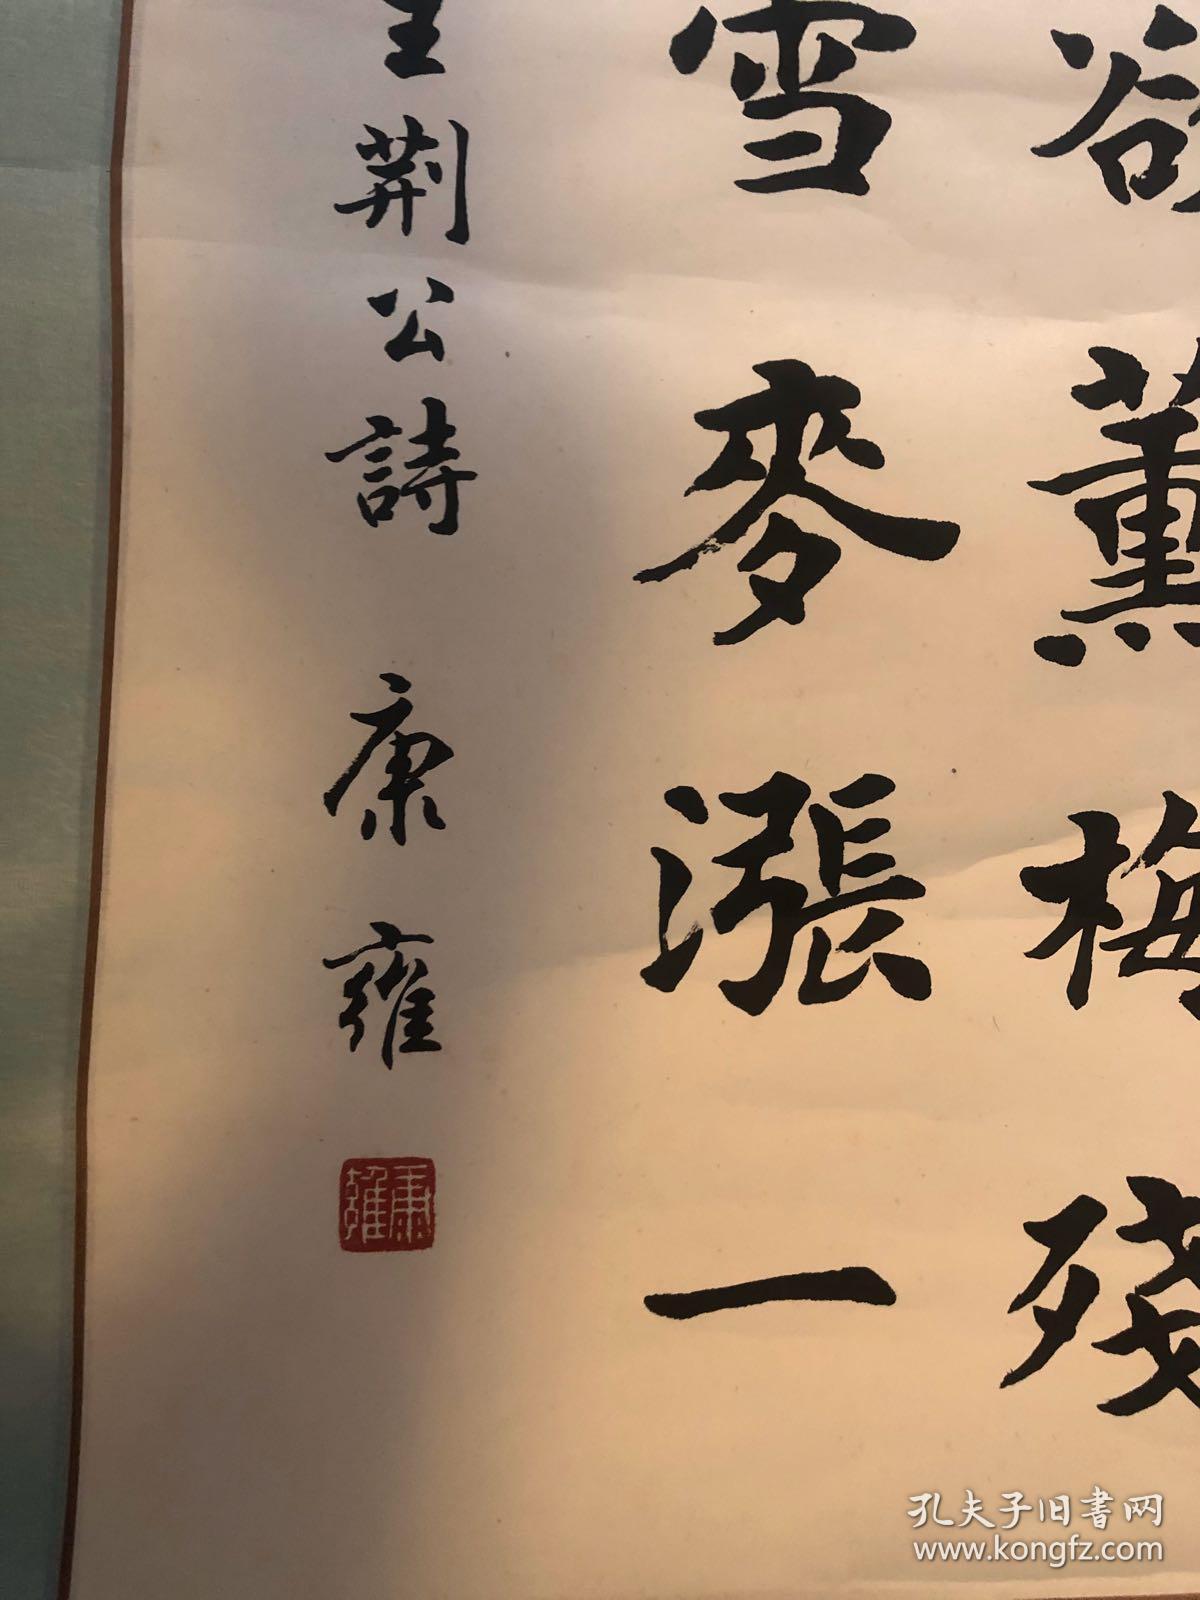 欲薰梅殘
雪麥漲一
王荆公詩 康雍
康雍
孔夫子旧书网
www.kongfz.com